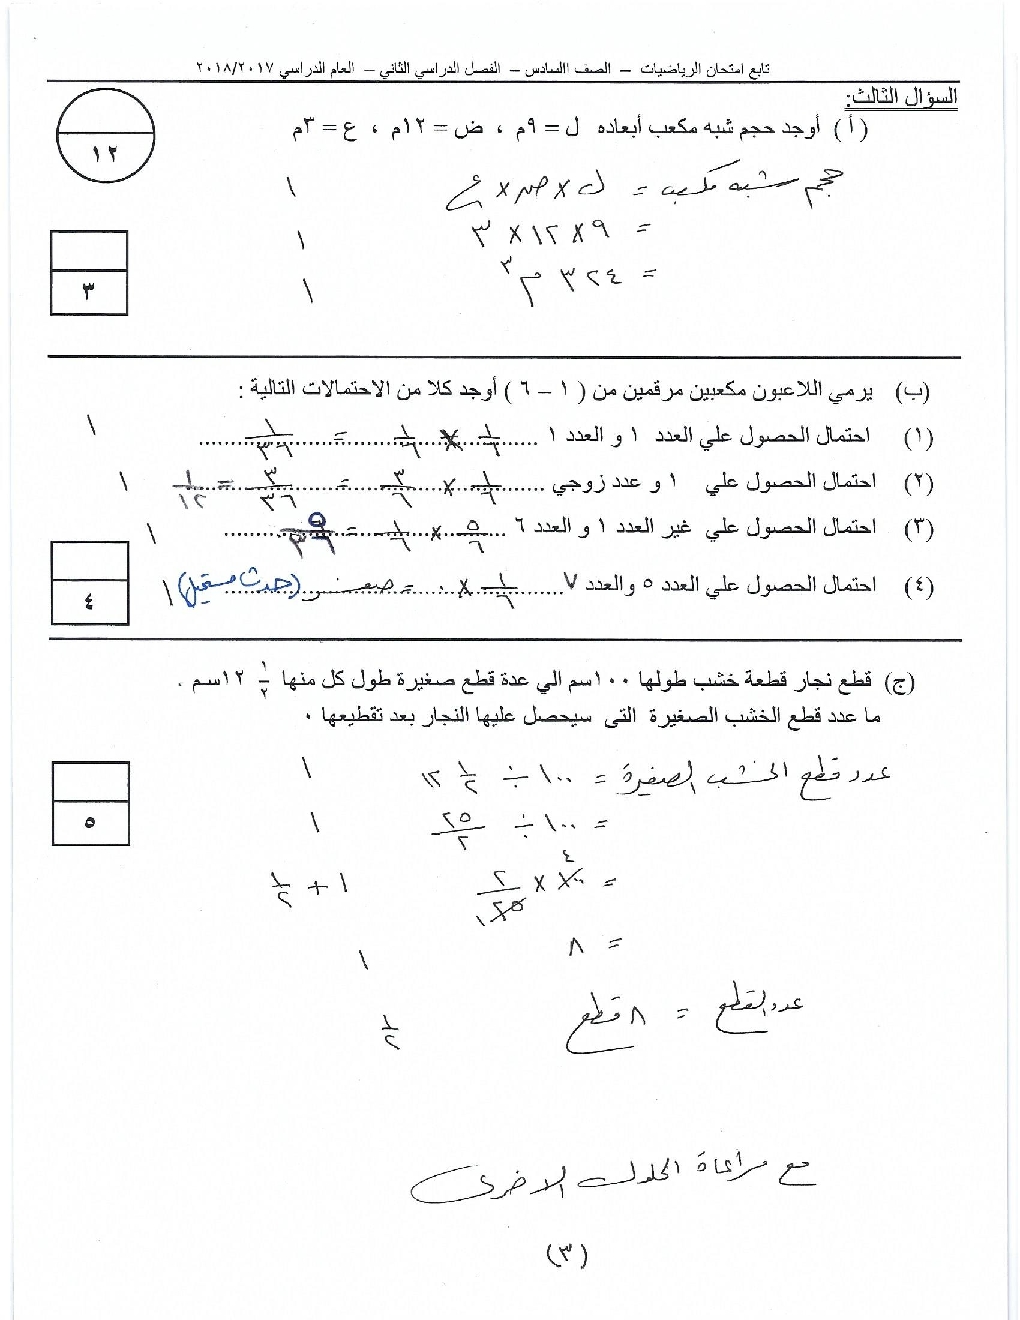 تابع امتحان الرياضيات – الصف االسادس – الفصل الدراسي الثاني – العام الدراسي ٢٠١٨/٢٠١٧
السؤال الثالث:
١٢
(أ) أوجد حجم شبه مكعب أبعاده ل = ٩م ، ض = ١٢م ، ع = ٣م
حجم شبه مكعب = ل × ض × ع ١
= ٩ × ١٢ × ٣ ١
= ٣٢٤ م٣ ١
٣
(ب) يرمي اللاعبون مكعبين مرقمين من ( ١ – ٦ ) أوجد كلا من الاحتمالات التالية :
(١) احتمال الحصول علي العدد ١ و العدد ١ ١/٦ × ١/٦ = ١/٣٦ ١
(٢) احتمال الحصول علي ١ و عدد زوجي ١/٦ × ٣/٦ = ٣/٣٦ = ١/١٢ ١
(٣) احتمال الحصول علي غير العدد ١ و العدد ٦ ٥/٦ × ١/٦ = ٥/٣٦ ١
(٤) احتمال الحصول علي العدد ٥ والعدد ٧ ١/٦ × ٠ = صفر (حدث مستحيل) ١
٤
(ج) قطع نجار قطعة خشب طولها ١٠٠سم الي عدة قطع صغيرة طول كل منها ١/٢ ١٢سم .
ما عدد قطع الخشب الصغيرة التى سيحصل عليها النجار بعد تقطيعها ٠
عدد قطع الخشب الصغيرة = ١٠٠ ÷ ١/٢ ١٢ ١
= ١٠٠ ÷ ٢٥/٢ ١
٥
= ١٠٠ ٤ × ٢/٢٥ ١ ١ + ١/٢
= ٨ ١
عدد القطع = ٨ قطع ١/٢
مع مراعاة الحلول الاخرى
(٣)